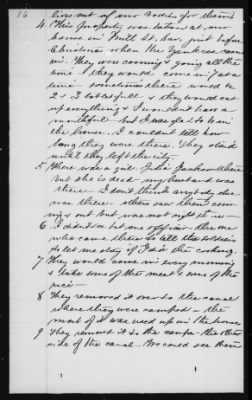 16
lives out of our bodies for them
4 This property was taken at my
home in Mill st. Sav. just before
Christmas when the Yankees came
in. They were coming & going all the
time & they would come in just a
time - sometimes there would be
2 & 3 tables full - & they would eat
up everything & I wouldn't have a
mouthful but I was glad to be in
the house. I couldnt tell how
long they were there. They staid
until they left the city -
5 There was a girl Julia Jackson there
but she is dead. my husband was
there. I dont think anybody else
was there - others saw them com-
ing out but was not right there in -
6 I didnt see but one officer - the one
who came there to tell the soldiers
to let me stay if I did the cooking.
7 They would come in every morning
& take some of that meat & some of the
rice -
8 They removed it over to the canal
where they were camped - the
most of it was used up in the house
9 They removed it to the camp - the other
side of the canal - We could see them